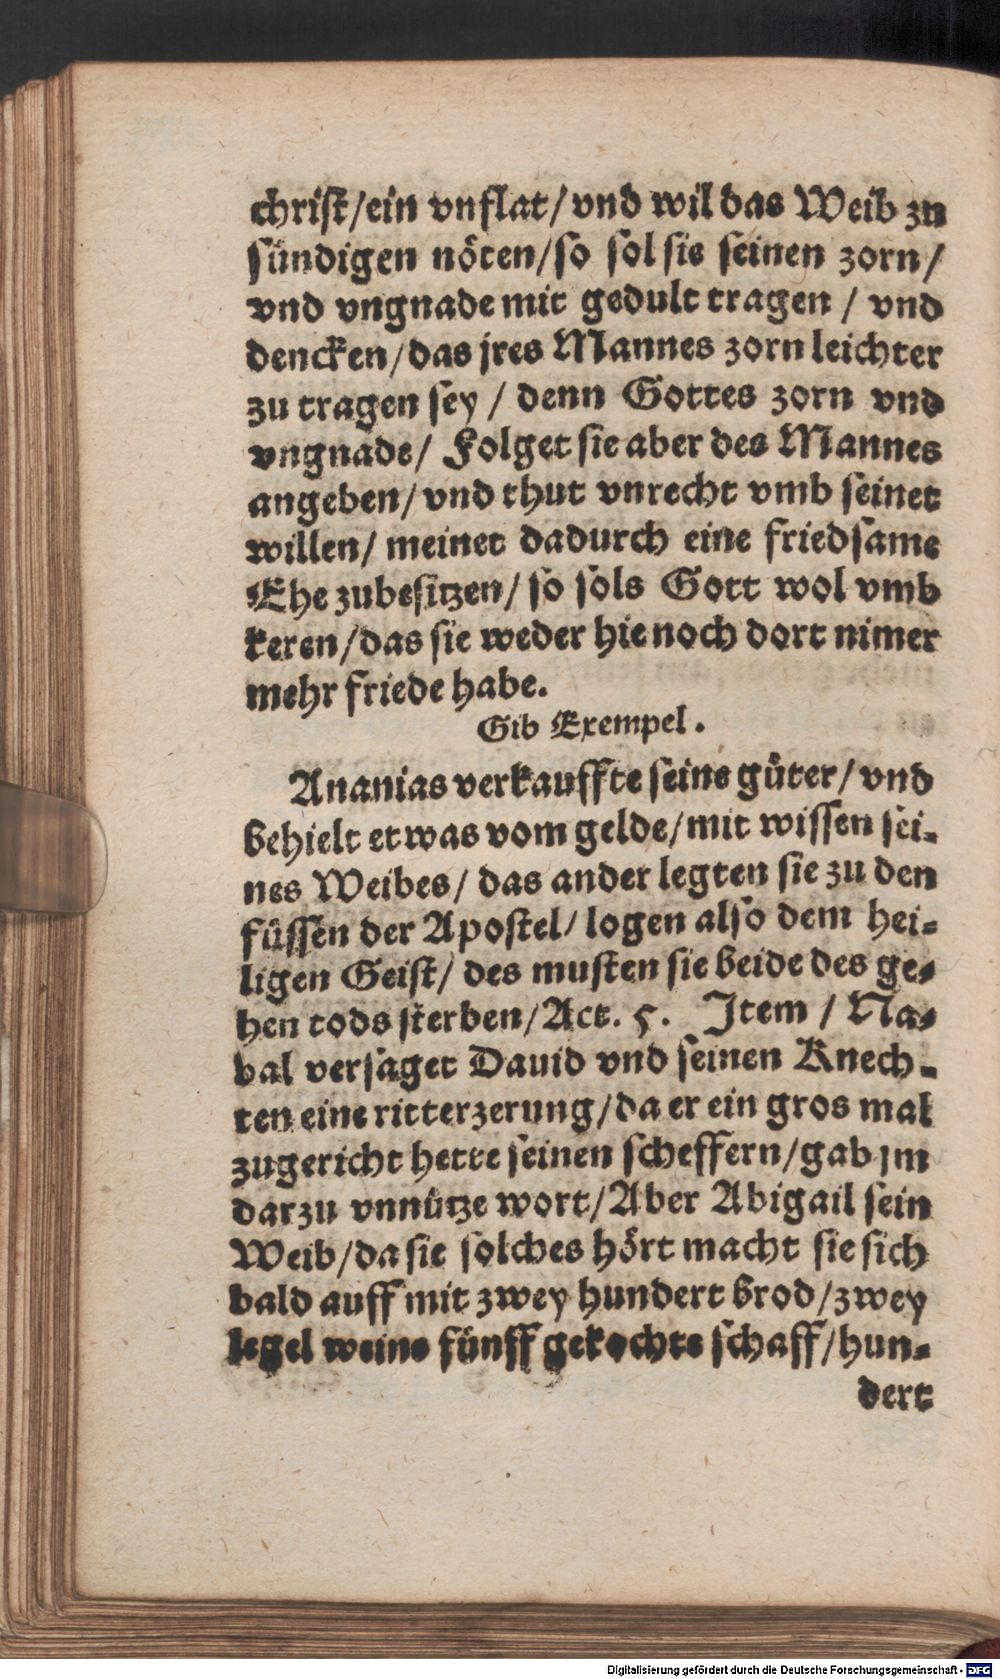 christ/ein vnflat/vnd wil das Weib zu
sündigen nöten/so sol sie seinen zorn/
vnd vngnade mit gedult tragen / vnd
dencken/das jres Mannes zorn leichter
zu tragen sey / denn Gottes zorn vnd
vngnade/ Folget sie aber des Mannes
angeben/vnd thut vnrecht vmb seinet
willen/ meinet dadurch eine friedsame
Ehe zubesitzen/ so sols Gott wol vmb
keren/das sie weder hie noch dort nimer
mehr friede habe.
Gib Exempel.
Ananias verkauffte seine güter/ vnd
behielt etwas vom gelde/mit wissen sei-
nes Weibes/ das ander legten sie zu den
füssen der Apostel/ logen also dem hei-
ligen Geist/ des musten sie beide des ge-
hen tods sterben/Act. 5. Item / Na-
bal versaget Dauid vnd seinen Knech-
ten eine ritterzerung/da er ein gros mal
zugericht hette seinen scheffern/gab jm
darzu vnnütze wort/Aber Abigail sein
Weib/da sie solches hört macht sie sich
bald auff mit zwey hundert brod/zwey
legel weins fünff gekochte schaff/hun-
dert
Digitalisierung gefördert durch die Deutsche Forschungsgemeinschaft - DFG